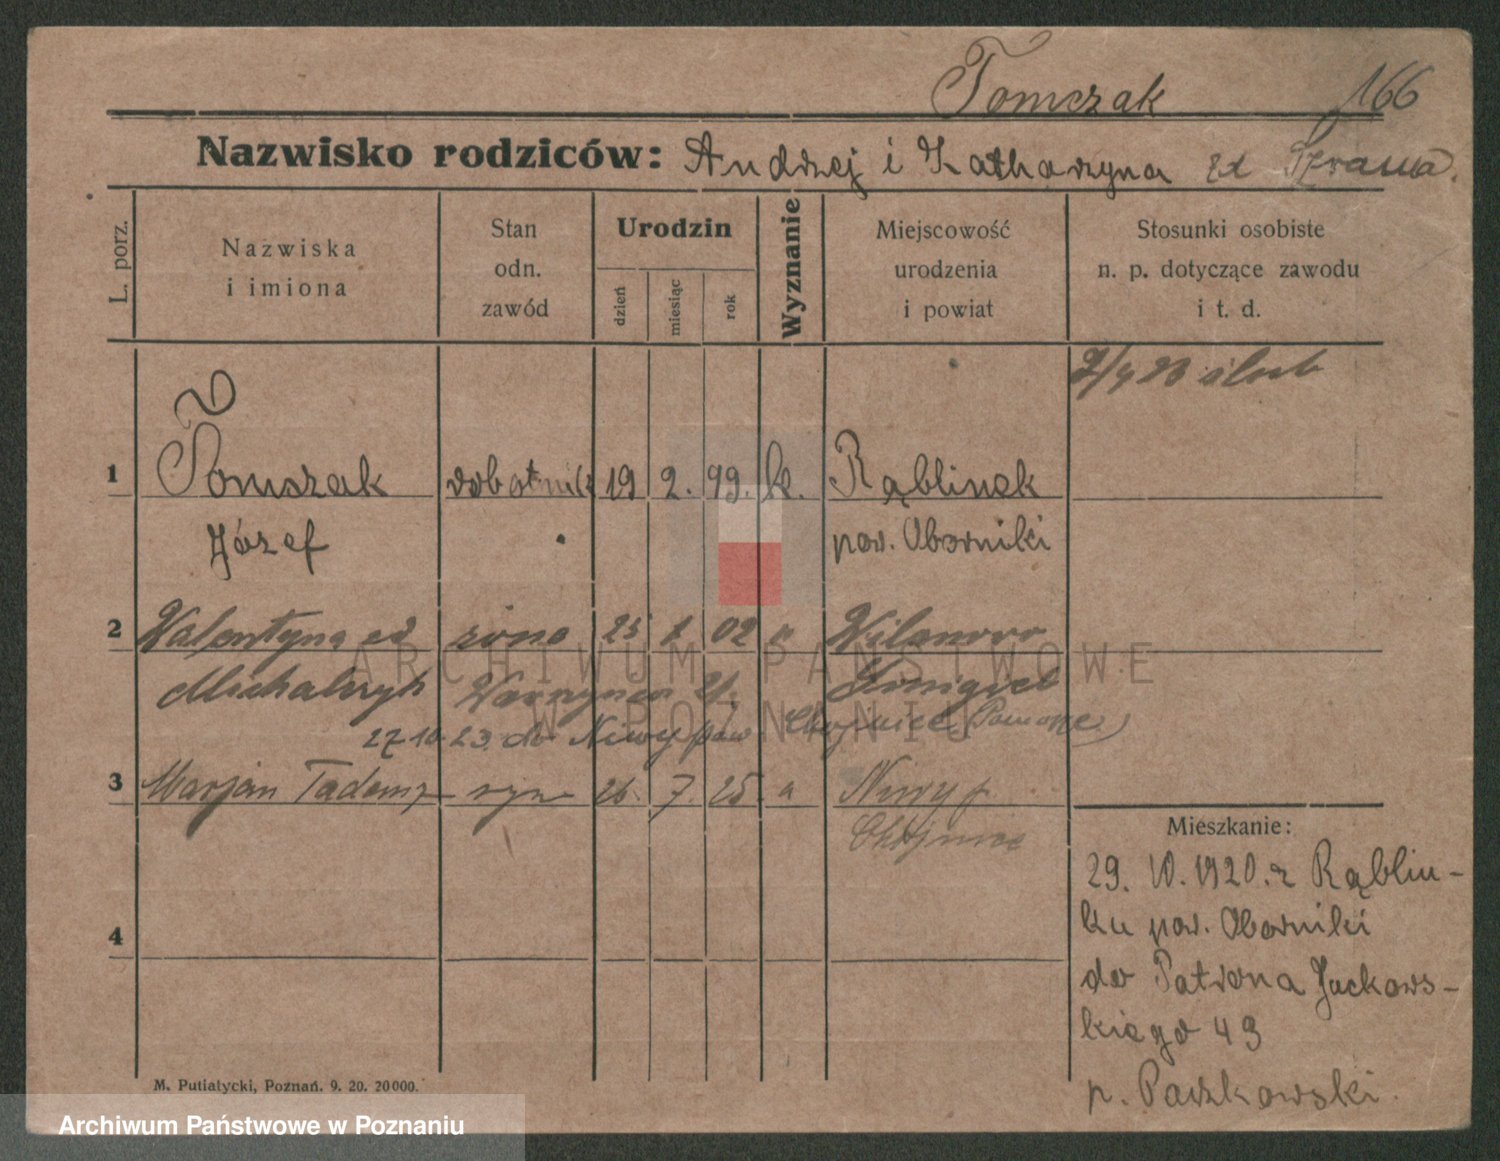 Tomczak 166
Nazwisko rodziców: Andrzej i Katharzyna zd
L. porz.
Nazwiska
i imiona
Stan
odn.
zawód
Urodzin
dzień
miesiąc
rok
Wyznanie
Miejscowość
urodzenia
i powiat
Stosunki osobiste
n. p. dotyczące zawodu
i t. d.
1 Tomczak robotnik 19 2. 99. k. Rąblinek
Józef pow. Oborniki
2 Walentyna żona 25 02 Wilanowo
Wawrzyniec Śmigiel
27 10 23. do Niwy pow Chojnice (Pomorze)
3 Marjan Tadeusz syn 26. 7. 25. Niwy p.
Chojnice
Mieszkanie:
29. 10. 1920. z Rąblin-
ku pow. Oborniki
do Patrona Jackows-
kiego 49
p. Paczkowski.
4
M. Putiatycki, Poznań. 9. 20. 20000.
ARCHIWUM PAŃSTWOWE
W POZNANIU
Archiwum Państwowe w Poznaniu